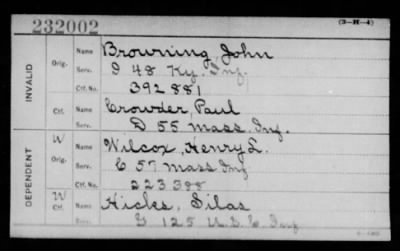 232002 (3-H-4)
INVALID
Orig. Name Browning, John
Serv. D 48 Ky. Inf.
Ctf. No. 392881
Ctf. Name Crowder, Paul
Serv. D 55 Mass. Inf.
DEPENDENT
W Orig. Name Wilcox, Henry L.
Serv. C 57 Mass Inf
Ctf. No. 223388
W Ctf. Name Hicles, Silas
Serv. G 125 U.S.C Inf